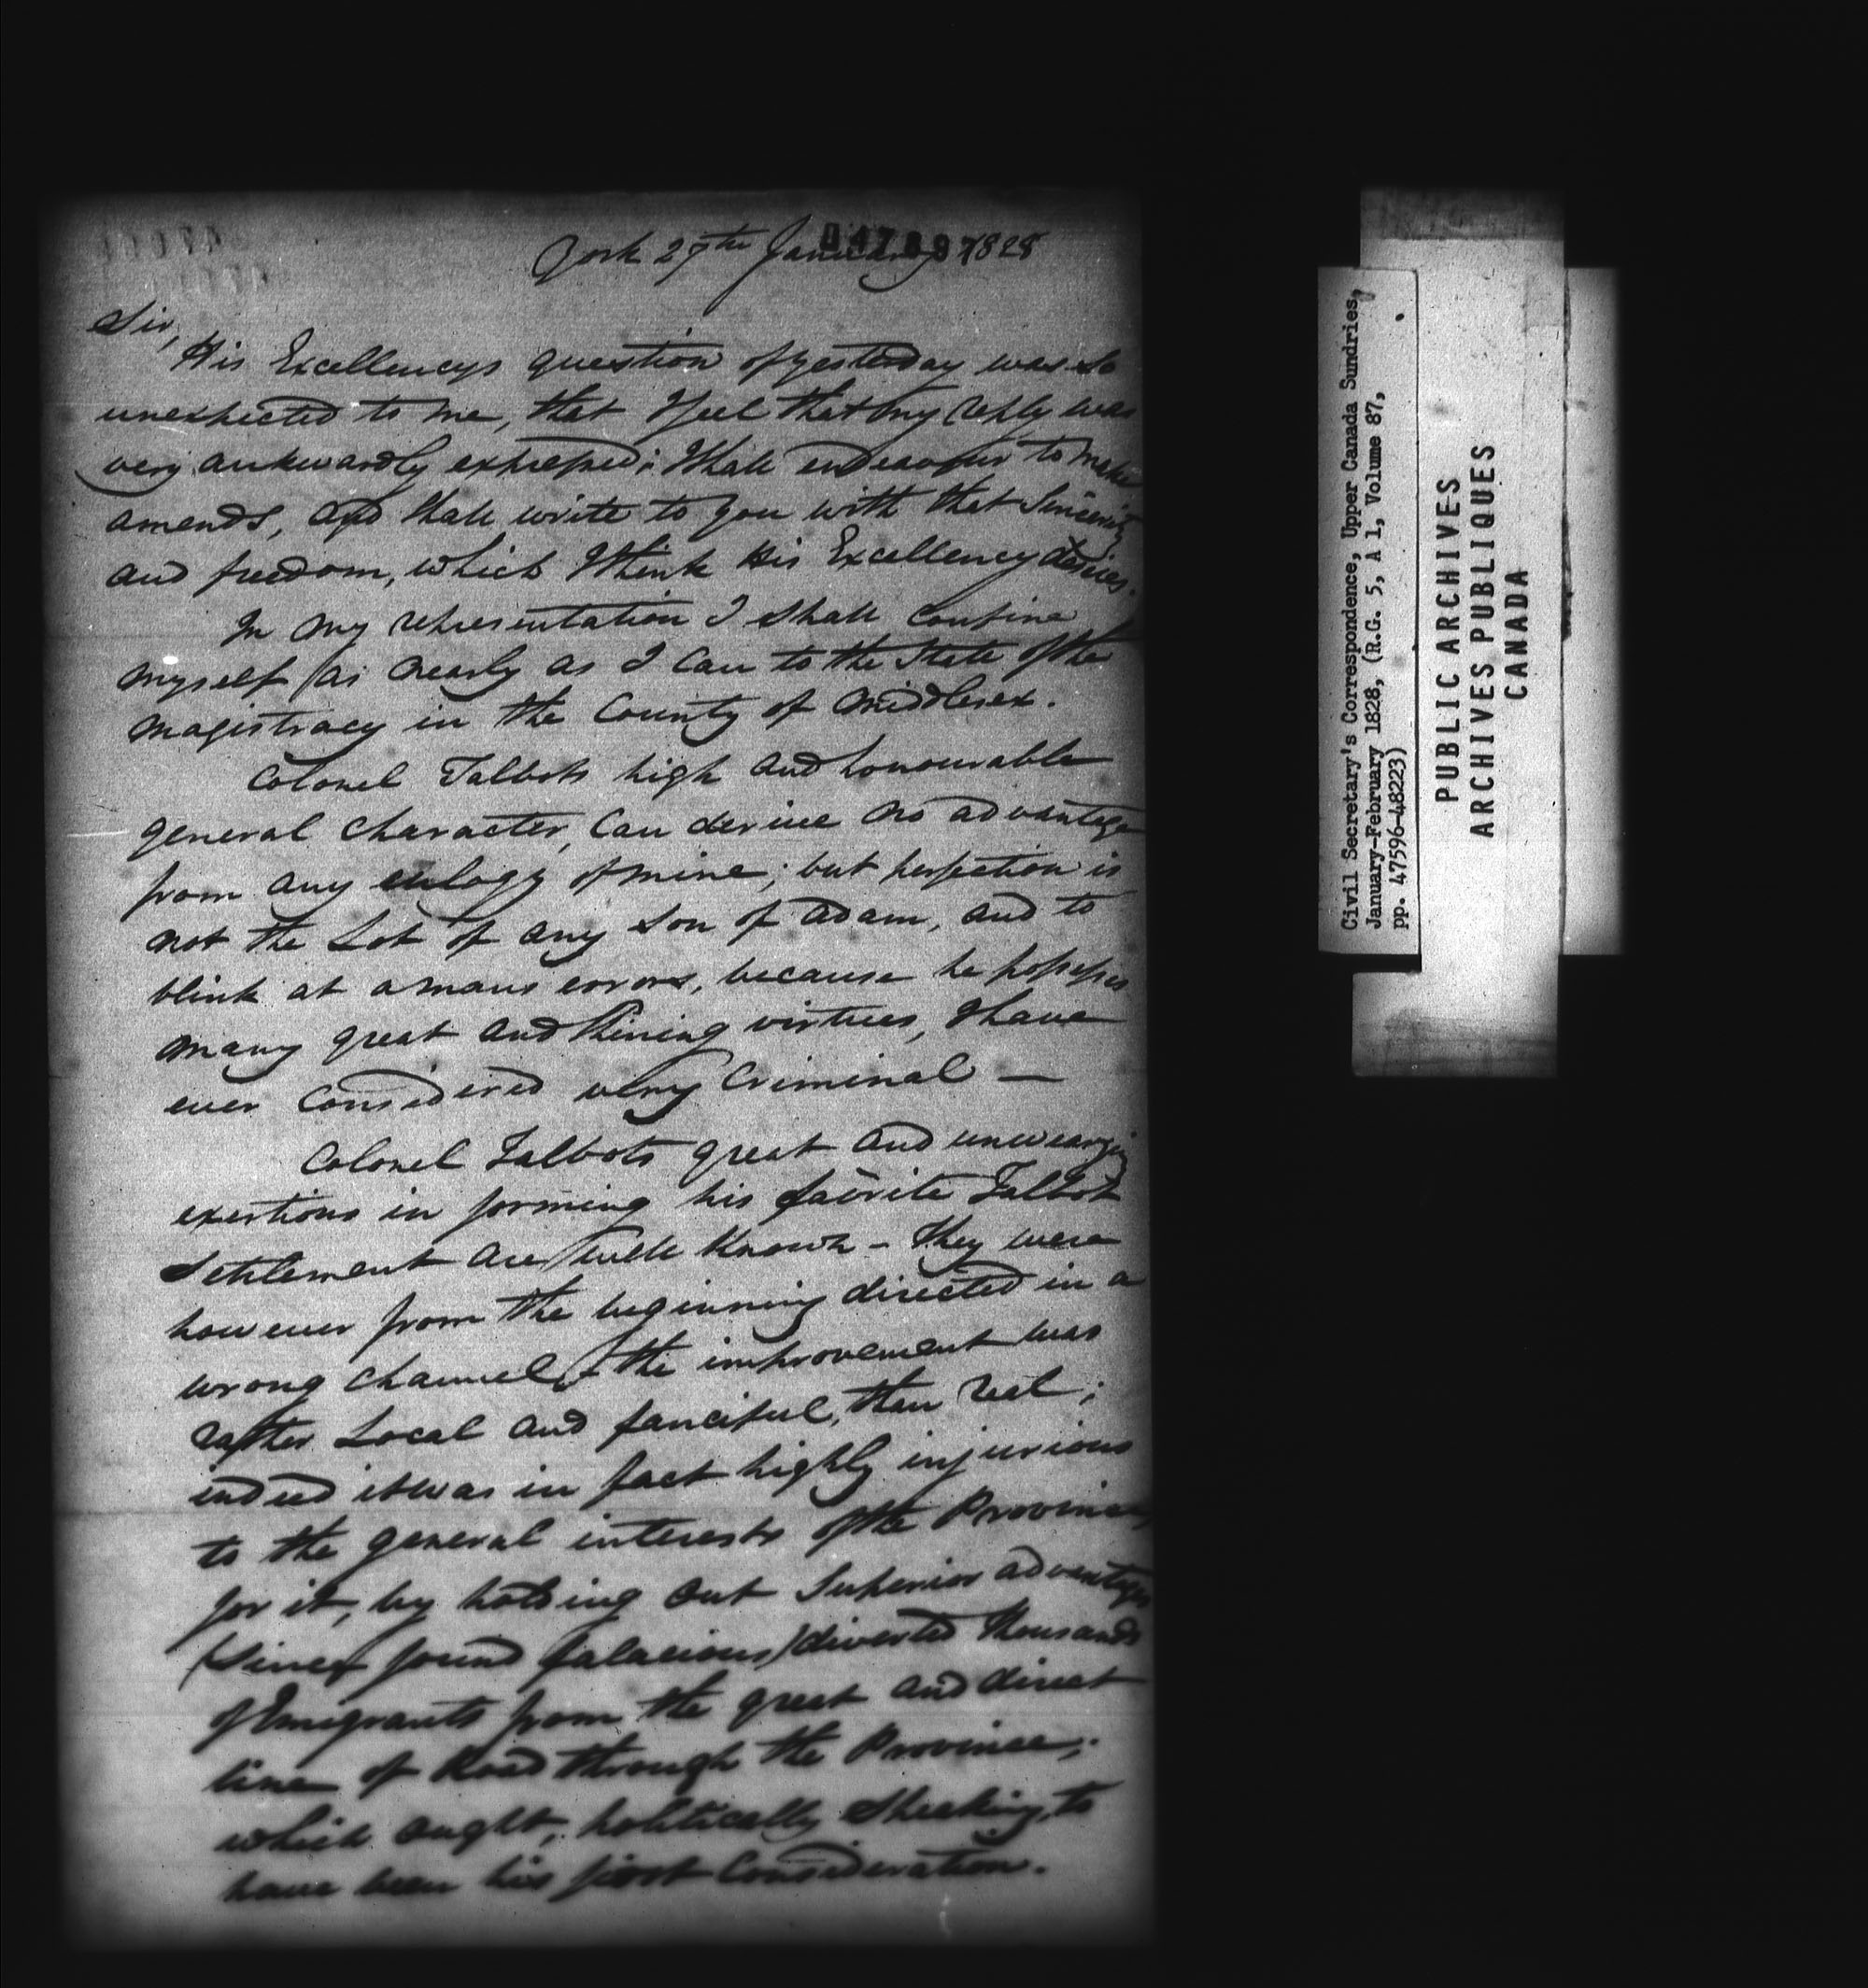 York 29th January 1828
Sir,
His Excellencys question of yesterday was so
unexpected to me, that I feel that my reply was
very aukwardly expressed; I shall endeavour to make
amends, and shall write to you with that Sincerity
and freedom, which I think His Excellency desires.
In my representation I shall confine
myself as nearly as I can to the State of the
Magistracy in the County of Middlesex.
Colonel Talbots high and honourable
general character, can derive no advantage
from any eulogy of mine; but perfection is
not the Lot of any Son of Adam, and to
blink at a mans errors, because he possesses
many great and Shining virtues, I have
ever Considered very Criminal —
Colonel Talbots great and unwearying
exertions in forming his favorite Talbot
Settlement are well Known - They were
however from the beginning directed in a
wrong channel, the improvement was
rather Local and fanciful, than real;
indeed it was in fact highly injurious
to the general interests of the Province,
for it, by holding out Superior advantages
(Since found falacious) diverted thousands
of Emigrants from the great and direct
line of Road through the Province;
which ought, politically Speaking, to
have been his first Consideration.
Civil Secretary's Correspondence, Upper Canada Sundries,
January-February 1828, (R.G. 5, A 1, Volume 87,
pp. 47596-48223)
PUBLIC ARCHIVES
ARCHIVES PUBLIQUES
CANADA